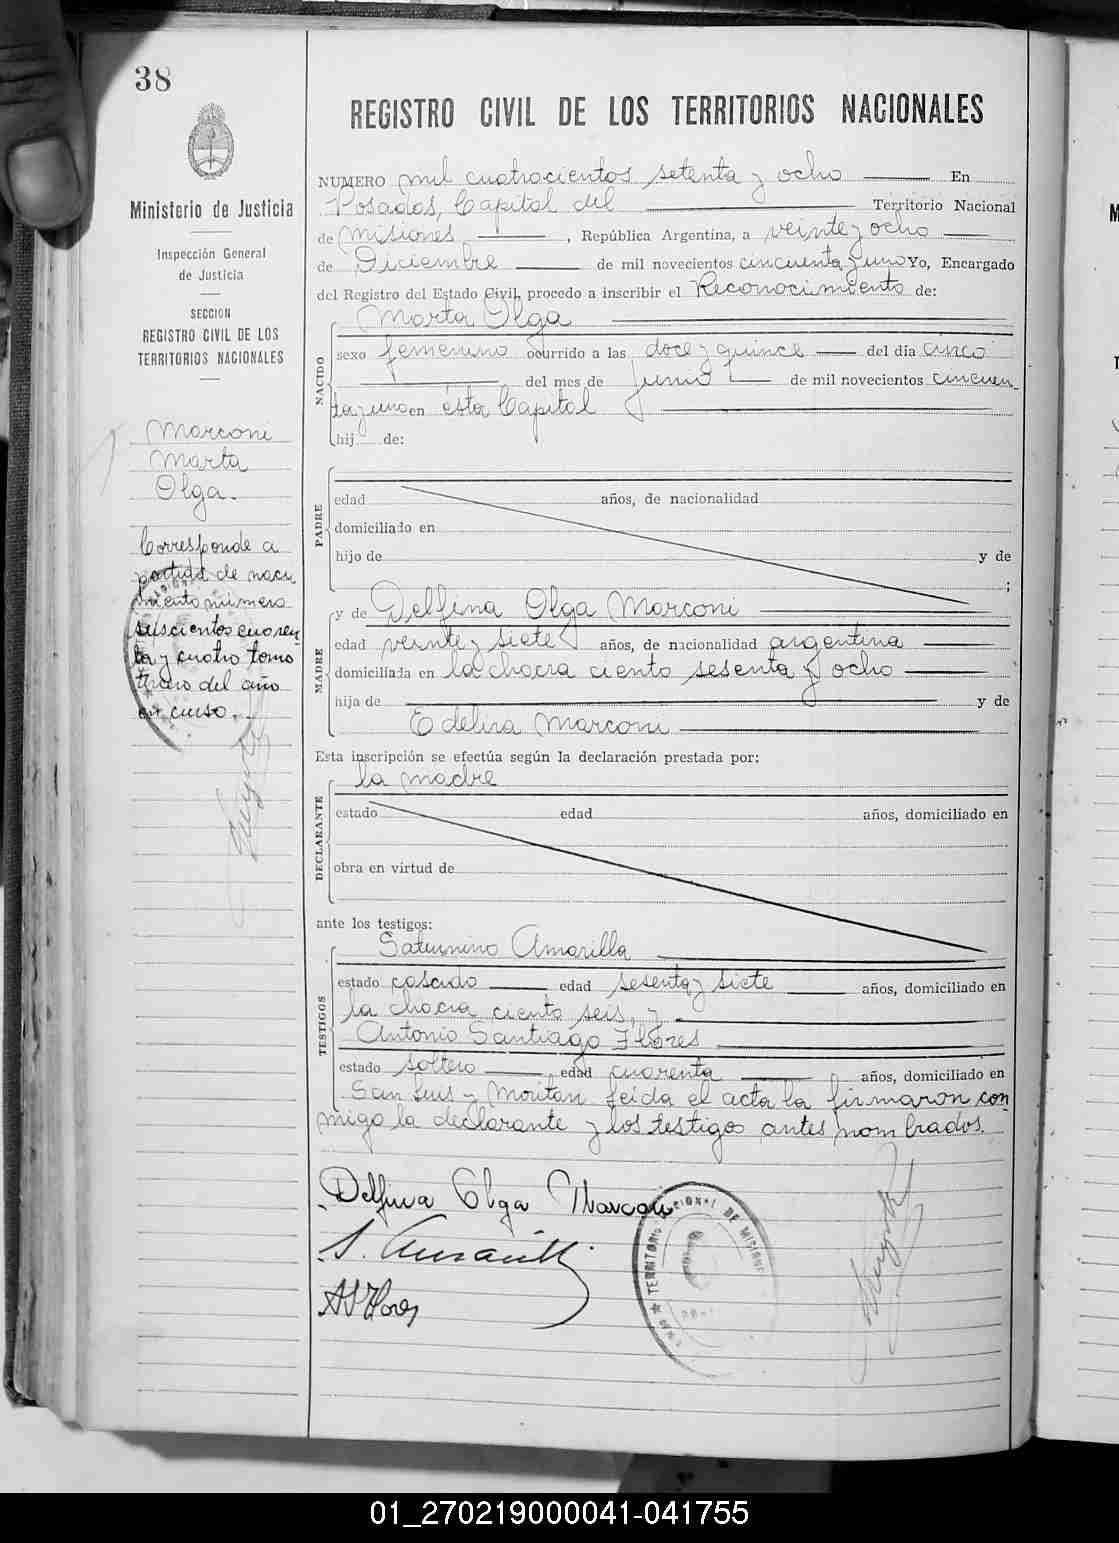 38
Ministerio de Justicia
Inspección General
de Justicia
SECCION
REGISTRO CIVIL DE LOS
TERRITORIOS NACIONALES
Marconi
Marta
Olga.
Corresponde a
partida de naci
miento número
seiscientos cuaren
ta y cuatro tomo
tercero del año
en curso.
REGISTRO CIVIL DE LOS TERRITORIOS NACIONALES
NUMERO mil cuatrocientos setenta y ocho En
Posadas, Capital del Territorio Nacional
de Misiones, República Argentina, a veinte y ocho
de Diciembre de mil novecientos cincuenta y uno Yo, Encargado
del Registro del Estado Civil, procedo a inscribir el Reconocimiento de:
NACIDO
Marta Olga
sexo femenino ocurrido a las doce y quince del día cinco
del mes de Junio de mil novecientos cincuen-
ta y uno en ésta Capital
hij de:
PADRE
edad años, de nacionalidad
domiciliado en
hijo de y de
;
MADRE
y de Delfina Olga Marconi
edad veinte y siete años, de nacionalidad argentina
domiciliada en la chacra ciento sesenta y ocho
hija de y de
Edelira Marconi
Esta inscripción se efectúa según la declaración prestada por:
la madre
DECLARANTE
estado edad años, domiciliado en
obra en virtud de
ante los testigos:
TESTIGOS
Saturnino Amarilla
estado casado edad sesenta y siete años, domiciliado en
la chacra ciento seis, y
Antonio Santiago Flores
estado soltero, edad cuarenta años, domiciliado en
San Luis y Moritan. Leida el acta la firmaron con
migo la declarante y los testigos antes nombrados.
Delfina Olga Marconi
S. Amarilla
A S Flores
TERRITORIO NACIONAL DE MISIONES
01_270219000041-041755